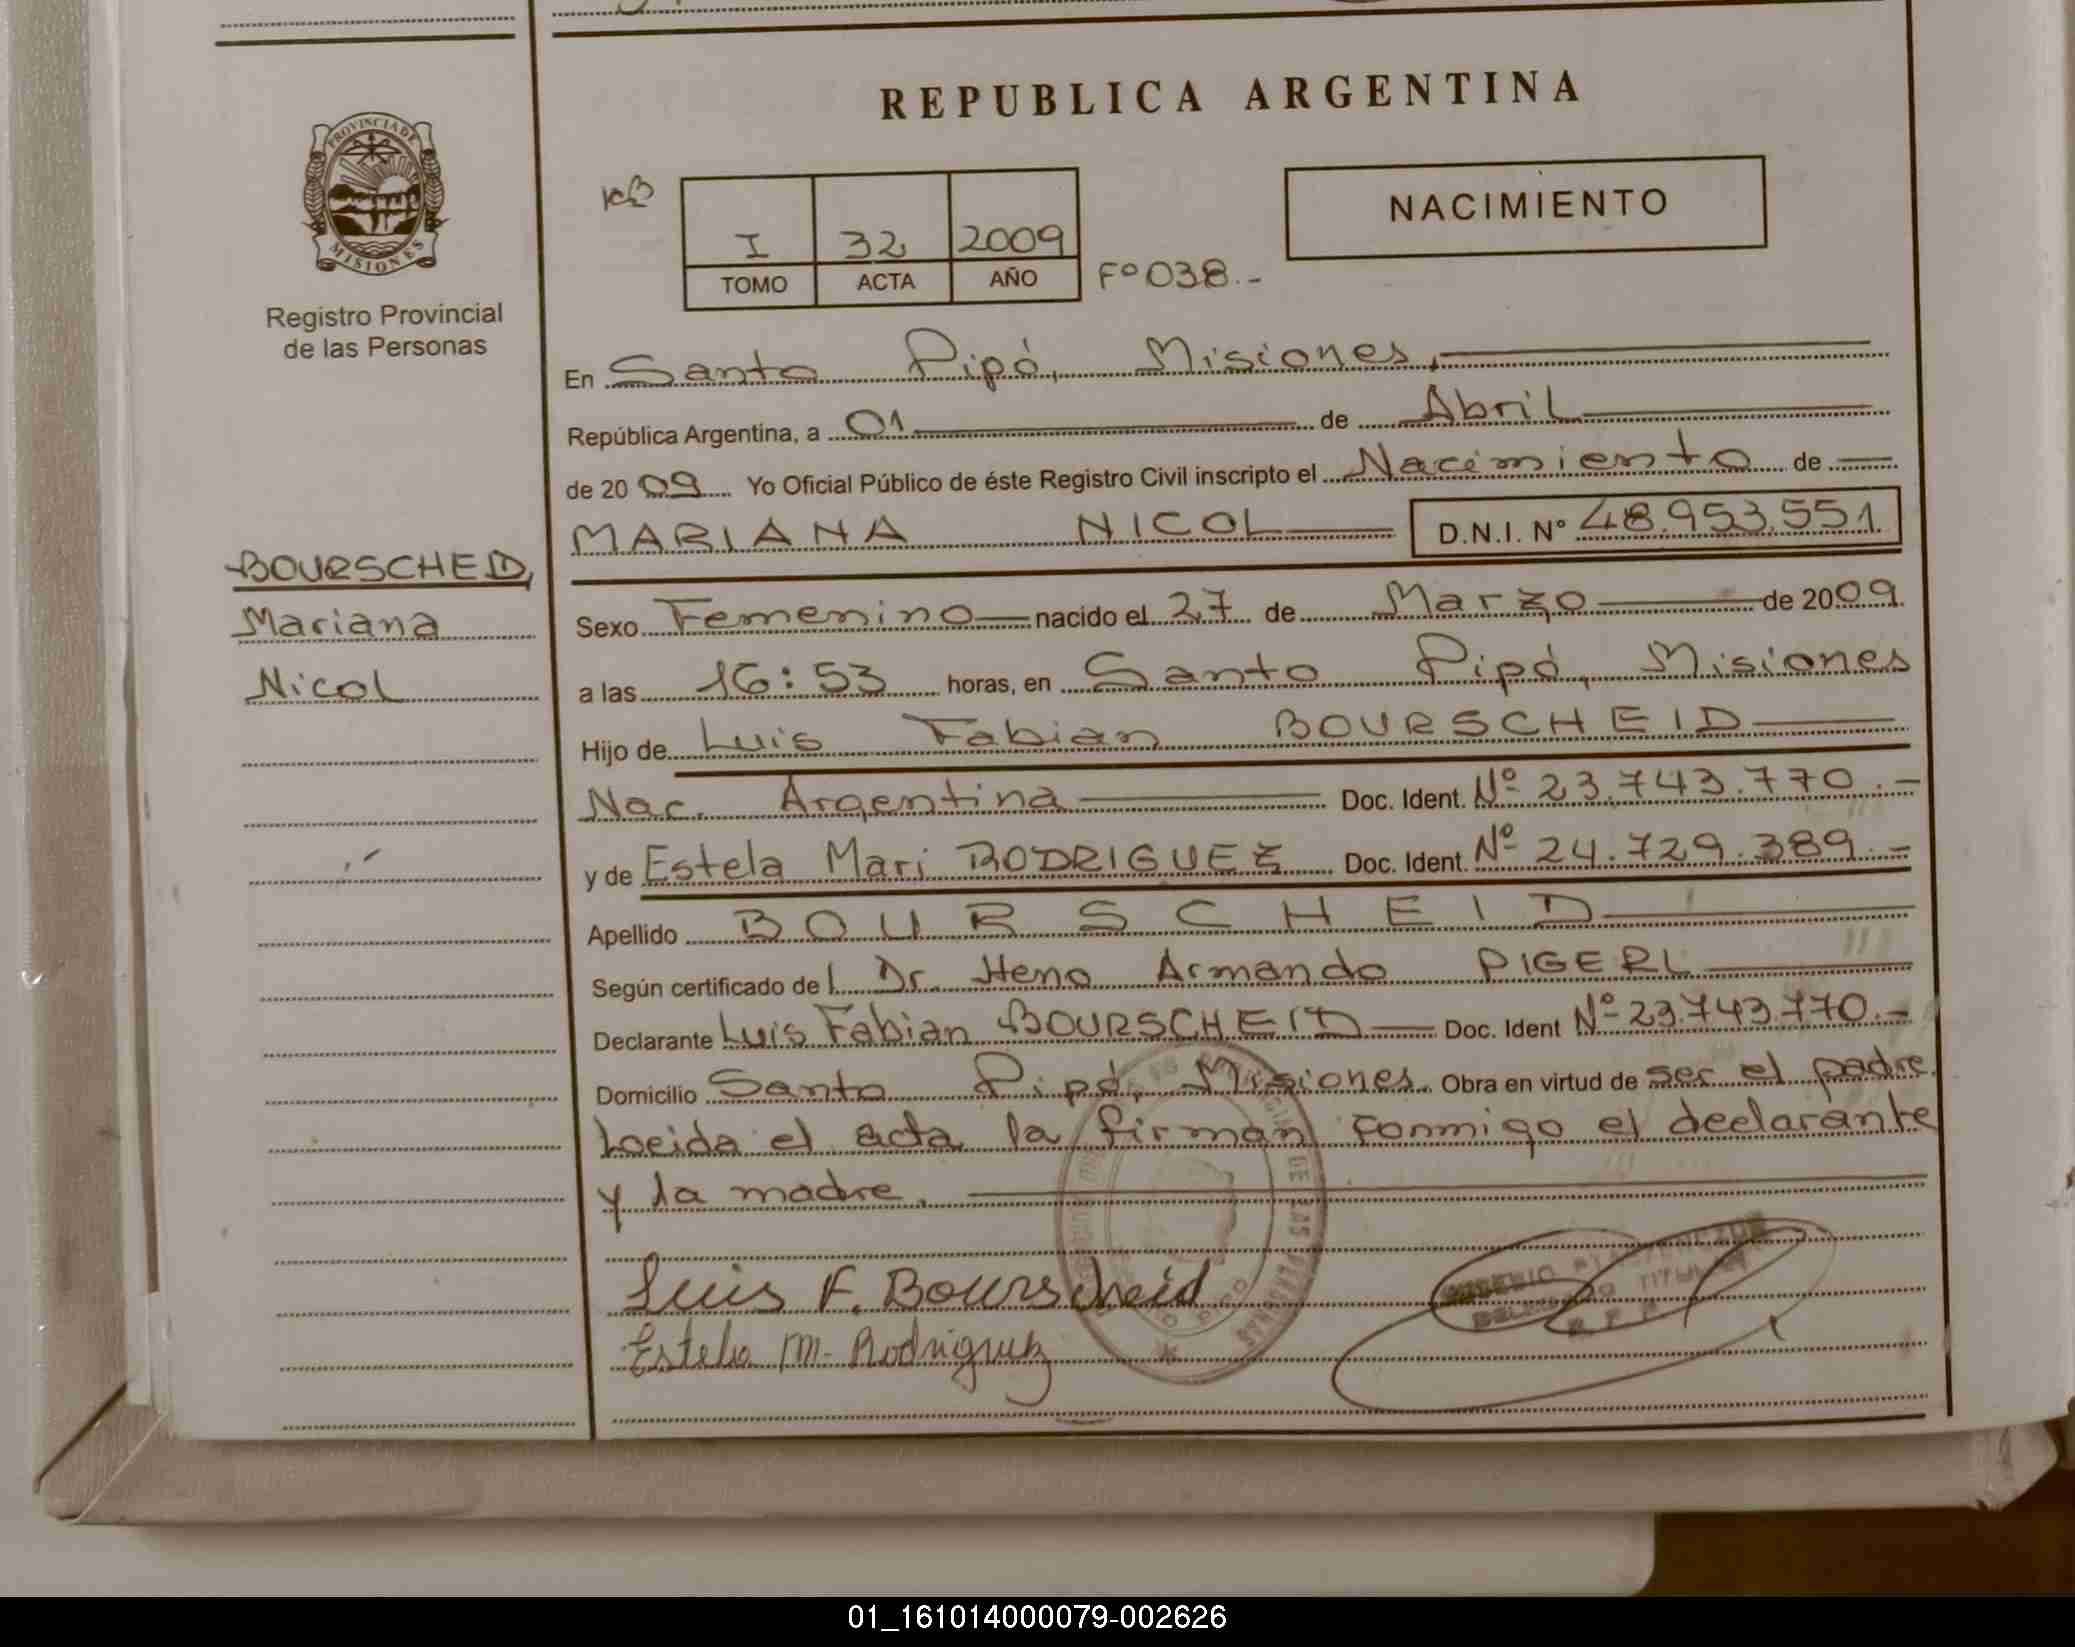 REPUBLICA ARGENTINA
PROVINCIA DE
MISIONES
Registro Provincial
de las Personas
I 32 2009
TOMO ACTA AÑO Fº 038.-
NACIMIENTO
En Santo Pipó, Misiones.
República Argentina, a 01 de Abril
de 20 09 Yo Oficial Público de éste Registro Civil inscripto el Nacimiento de
MARIANA NICOL D.N.I. Nº 48.953.551.
BOURSCHEID,
Mariana
Nicol
Sexo Femenino nacido el 27 de Marzo de 2009.
a las 16:53 horas, en Santo Pipó, Misiones
Hijo de Luis Fabian BOURSCHEID
Nac. Argentina Doc. Ident. Nº 23.743.770.-
y de Estela Mari RODRIGUEZ Doc. Ident. Nº 24.729.389.-
Apellido BOURSCHEID
Según certificado del Dr. Heno Armando PIGERL
Declarante Luis Fabian BOURSCHEID Doc. Ident Nº 23.743.770.-
Domicilio Santo Pipó, Misiones. Obra en virtud de ser el padre.
Leeida el acta la firman conmigo el declarante
y la madre.
Luis F. Bourscheid
Estela M. Rodriguez
DE LAS PERSONAS
TITULAR
01_161014000079-002626